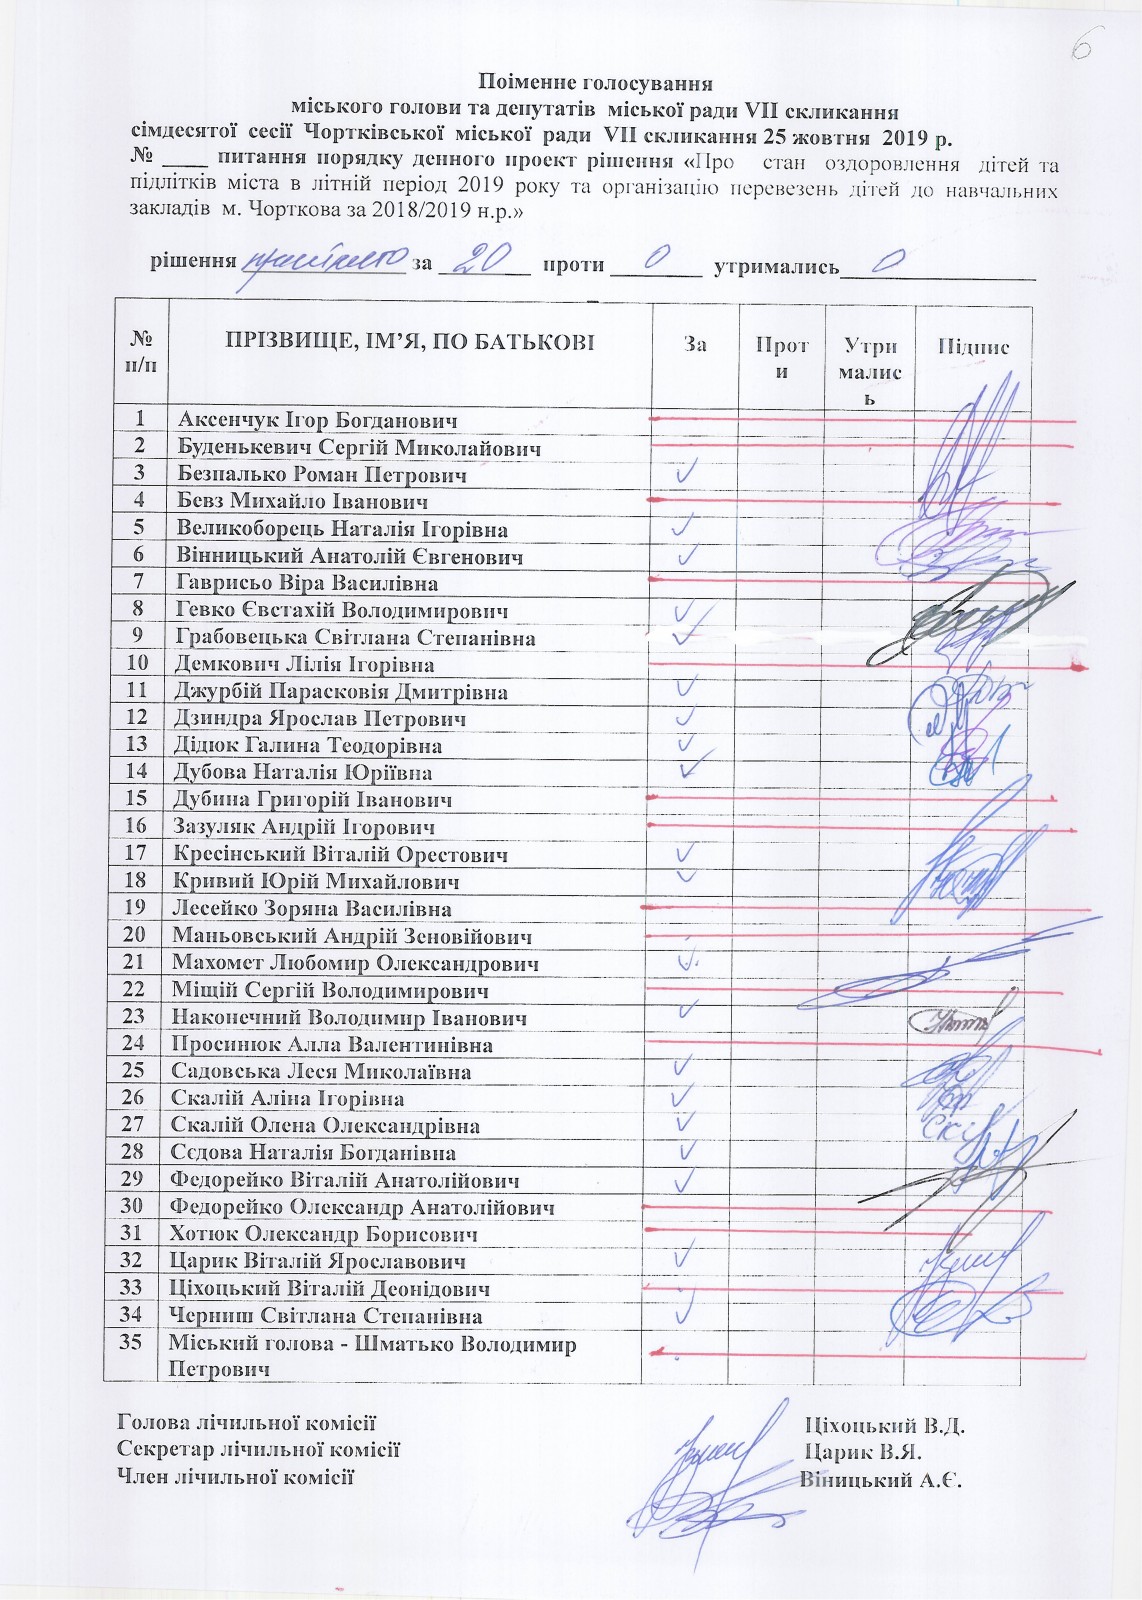 6
Поіменне голосування
міського голови та депутатів міської ради VII скликання
сімдесятої сесії Чортківської міської ради VII скликання 25 жовтня 2019 р.
№ ____ питання порядку денного проект рішення «Про стан оздоровлення дітей та
підлітків міста в літній період 2019 року та організацію перевезень дітей до навчальних
закладів м. Чорткова за 2018/2019 н.р.»
рішення прийнято за 20 проти 0 утримались 0
№ п/п ПРІЗВИЩЕ, ІМ’Я, ПО БАТЬКОВІ За Проти Утрималис ь Підпис
1 Аксенчук Ігор Богданович
2 Буденькевич Сергій Миколайович
3 Безпалько Роман Петрович ✓
4 Бевз Михайло Іванович
5 Великоборець Наталія Ігорівна ✓
6 Вінницький Анатолій Євгенович ✓
7 Гаврисьо Віра Василівна
8 Гевко Євстахій Володимирович ✓
9 Грабовецька Світлана Степанівна ✓
10 Демкович Лілія Ігорівна
11 Джурбій Парасковія Дмитрівна ✓
12 Дзиндра Ярослав Петрович ✓
13 Дідюк Галина Теодорівна ✓
14 Дубова Наталія Юріївна ✓
15 Дубина Григорій Іванович
16 Зазуляк Андрій Ігорович
17 Кресінський Віталій Орестович ✓
18 Кривий Юрій Михайлович ✓
19 Лесейко Зоряна Василівна
20 Маньовський Андрій Зеновійович
21 Махомет Любомир Олександрович ✓
22 Міщій Сергій Володимирович
23 Наконечний Володимир Іванович ✓
24 Просинюк Алла Валентинівна
25 Садовська Леся Миколаївна ✓
26 Скалій Аліна Ігорівна ✓
27 Скалій Олена Олександрівна ✓
28 Сєдова Наталія Богданівна ✓
29 Федорейко Віталій Анатолійович ✓
30 Федорейко Олександр Анатолійович
31 Хотюк Олександр Борисович
32 Царик Віталій Ярославович ✓
33 Ціхоцький Віталій Деонідович
34 Черниш Світлана Степанівна ✓
35 Міський голова - Шматько Володимир
Петрович
Голова лічильної комісії Ціхоцький В.Д.
Секретар лічильної комісії Царик В.Я.
Член лічильної комісії Віницький А.Є.